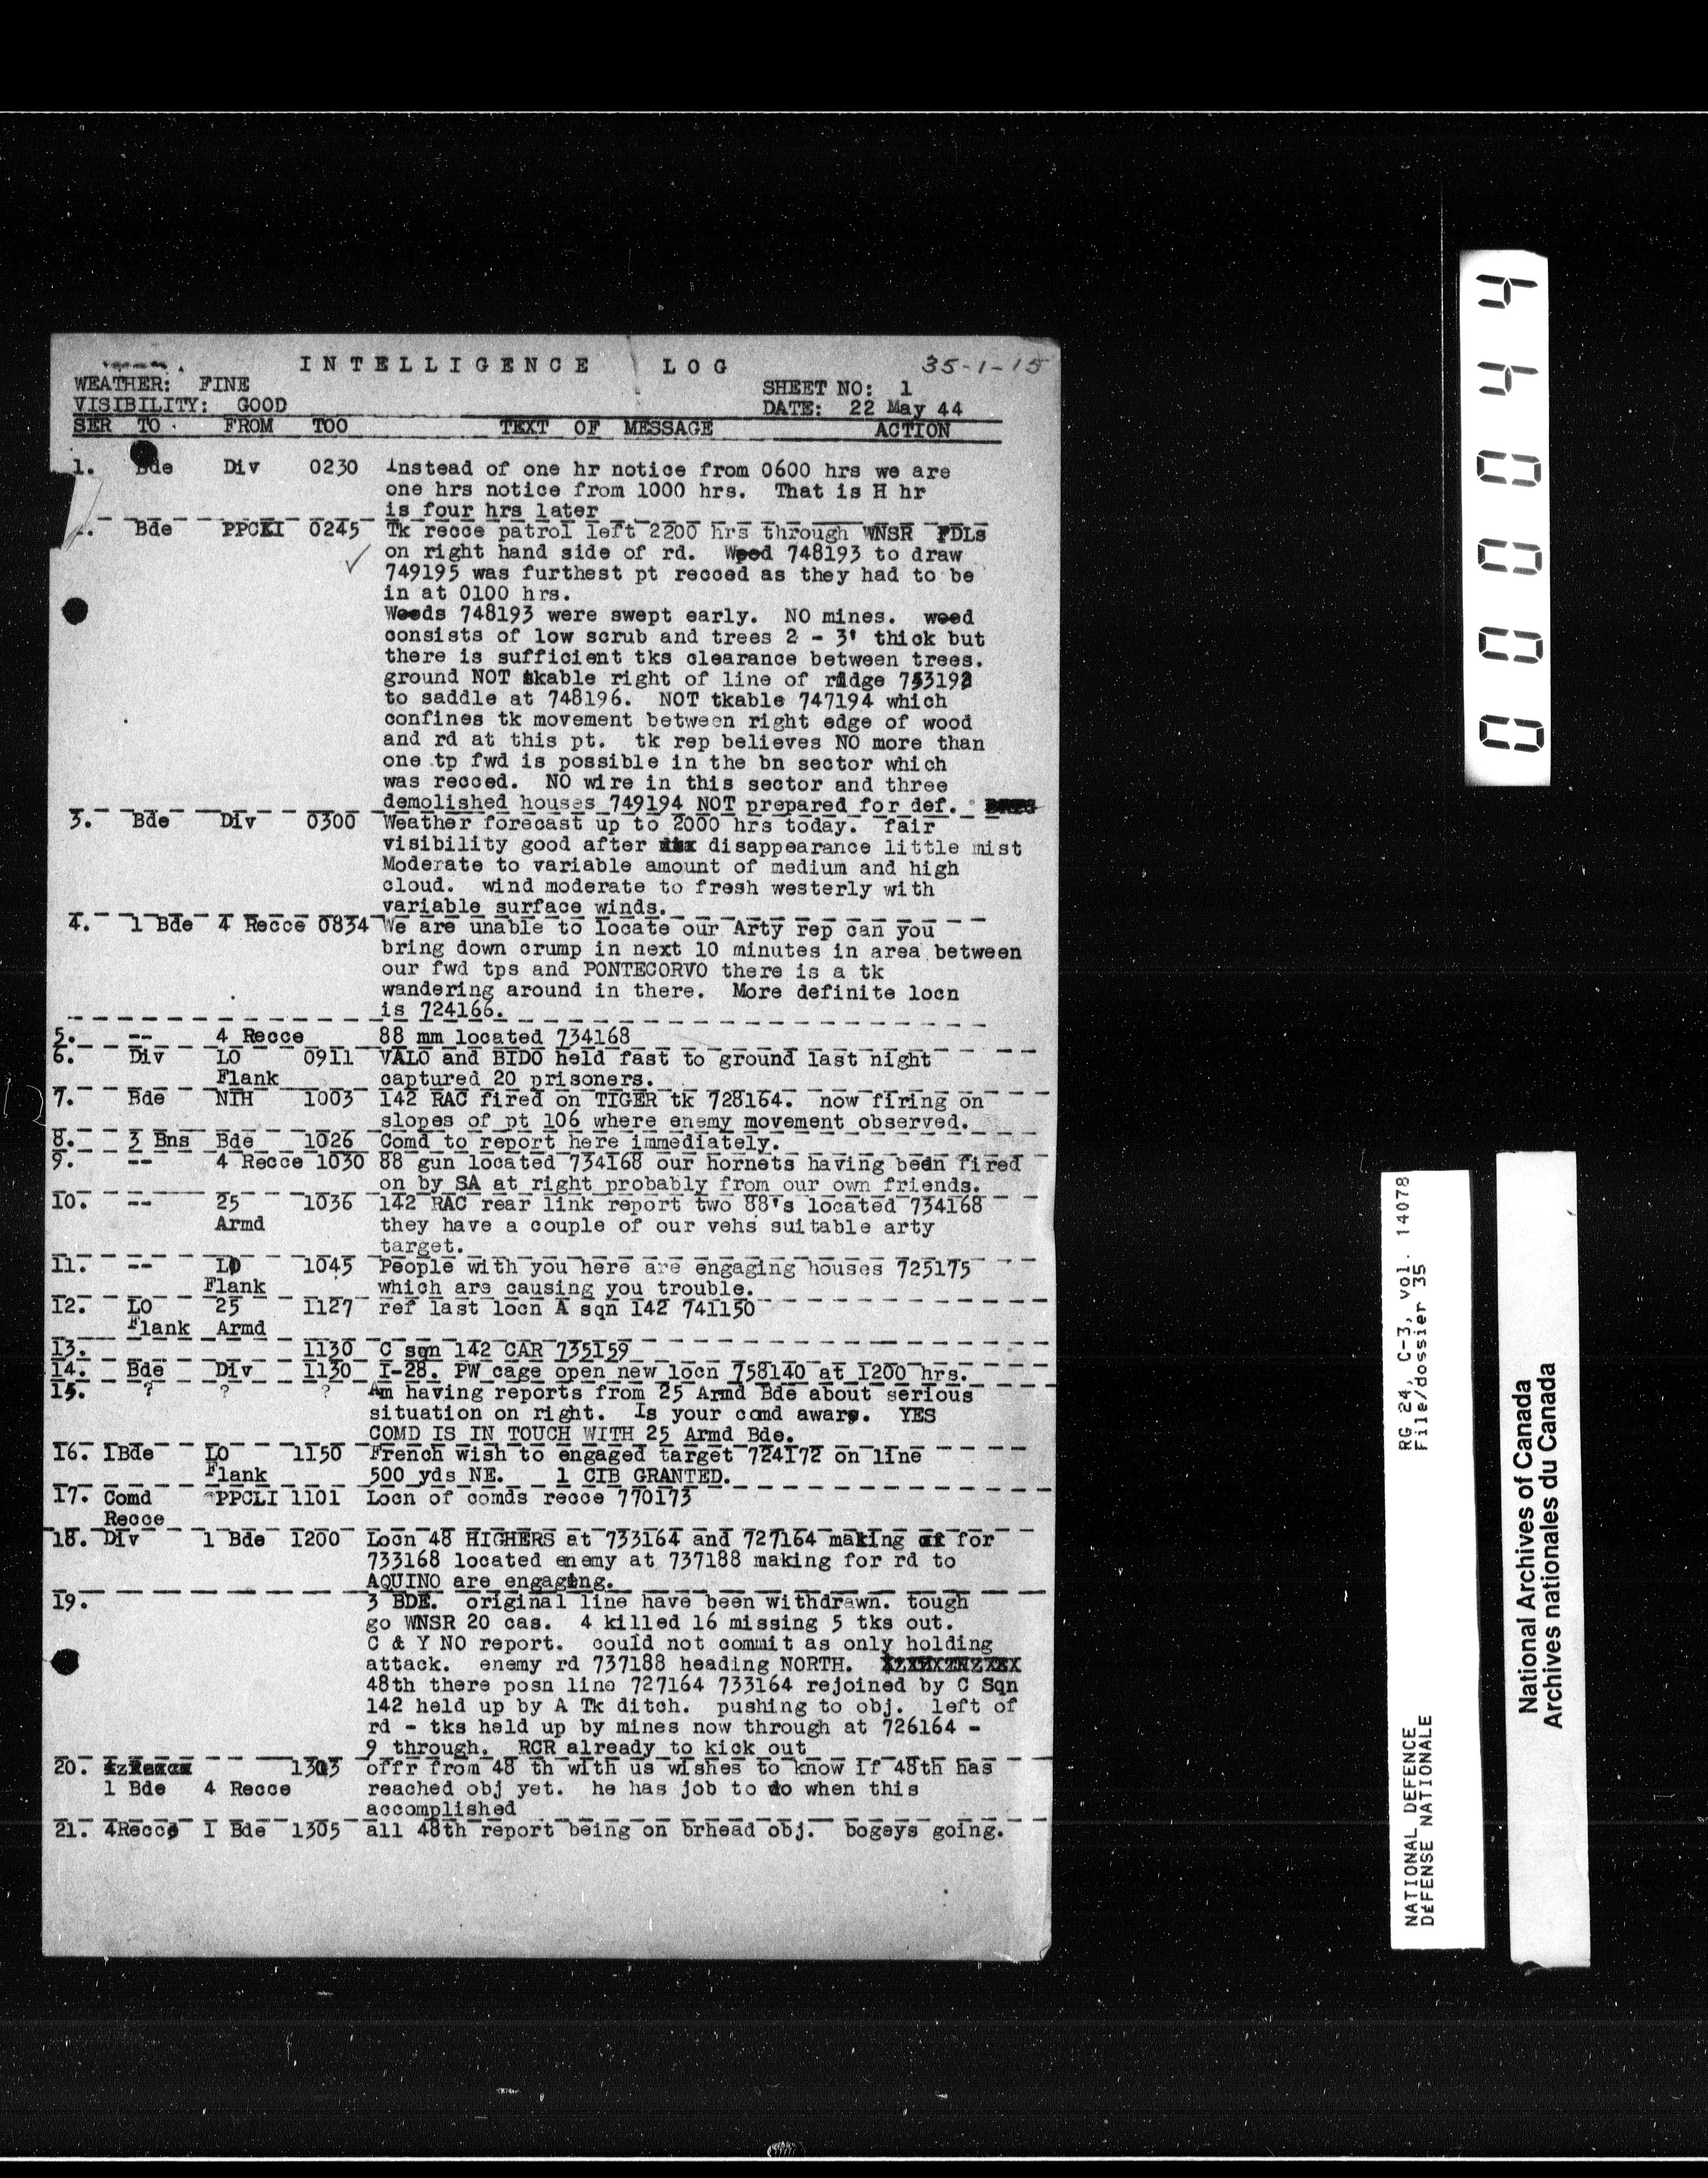 INTELLIGENCE LOG 35-1-15
WEATHER: FINE SHEET NO: 1
VISIBILITY: GOOD DATE: 22 May 44
SER TO FROM TOO TEXT OF MESSAGE ACTION
1. Bde Div 0230 Instead of one hr notice from 0600 hrs we are
one hrs notice from 1000 hrs. That is H hr
is four hrs later
Bde PPCLI 0245 Tk recce patrol left 2200 hrs through WNSR FDLs
on right hand side of rd. Wood 748193 to draw
749195 was furthest pt recced as they had to be
in at 0100 hrs.
Woods 748193 were swept early. NO mines. wood
consists of low scrub and trees 2 - 3' thick but
there is sufficient tks clearance between trees.
ground NOT tkable right of line of ridge 753192
to saddle at 748196. NOT tkable 747194 which
confines tk movement between right edge of wood
and rd at this pt. tk rep believes NO more than
one tp fwd is possible in the bn sector which
was recced. NO wire in this sector and three
demolished houses 749194 NOT prepared for def.
3. Bde Div 0300 Weather forecast up to 2000 hrs today. fair
visibility good after disappearance little mist
Moderate to variable amount of medium and high
cloud. wind moderate to fresh westerly with
variable surface winds.
4. 1 Bde 4 Recce 0834 We are unable to locate our Arty rep can you
bring down crump in next 10 minutes in area between
our fwd tps and PONTECORVO there is a tk
wandering around in there. More definite locn
is 724166.
5. -- 4 Recce 88 mm located 734168
6. Div LO 0911 VALO and BIDO held fast to ground last night
Flank captured 20 prisoners.
7. Bde NIH 1003 142 RAC fired on TIGER tk 728164. now firing on
slopes of pt 106 where enemy movement observed.
8. 3 Bns Bde 1026 Comd to report here immediately.
9. -- 4 Recce 1030 88 gun located 734168 our hornets having been fired
on by SA at right probably from our own friends.
10. -- 25 1036 142 RAC rear link report two 88's located 734168
Armd they have a couple of our vehs suitable arty
target.
11. -- LO 1045 People with you here are engaging houses 725175
Flank which are causing you trouble.
12. LO 25 1127 ref last locn A sqn 142 741150
Flank Armd
13. 1130 C sqn 142 CAR 735159
14. Bde Div 1130 I-28. PW cage open new locn 758140 at 1200 hrs.
15. ? ? ? Am having reports from 25 Armd Bde about serious
situation on right. Is your comd aware. YES
COMD IS IN TOUCH WITH 25 Armd Bde.
16. 1Bde LO 1150 French wish to engaged target 724172 on line
Flank 500 yds NE. 1 CIB GRANTED.
17. Comd PPCLI 1101 Locn of comds recce 770173
Recce
18. Div 1 Bde 1200 Locn 48 HIGHERS at 733164 and 727164 making for
733168 located enemy at 737188 making for rd to
AQUINO are engaging.
19. 3 BDE. original line have been withdrawn. tough
go WNSR 20 cas. 4 killed 16 missing 5 tks out.
C & Y NO report. could not commit as only holding
attack. enemy rd 737188 heading NORTH.
48th there posn line 727164 733164 rejoined by C Sqn
142 held up by A Tk ditch. pushing to obj. left of
rd - tks held up by mines now through at 726164 -
9 through. RCR already to kick out
20. 1303 offr from 48 th with us wishes to know if 48th has
1 Bde 4 Recce reached obj yet. he has job to do when this
accomplished
21. 4Recce 1 Bde 1305 all 48th report being on brhead obj. bogeys going.
000044
RG 24, C-3, vol. 14078
File/dossier 35
NATIONAL DEFENCE
DÉFENSE NATIONALE
National Archives of Canada
Archives nationales du Canada